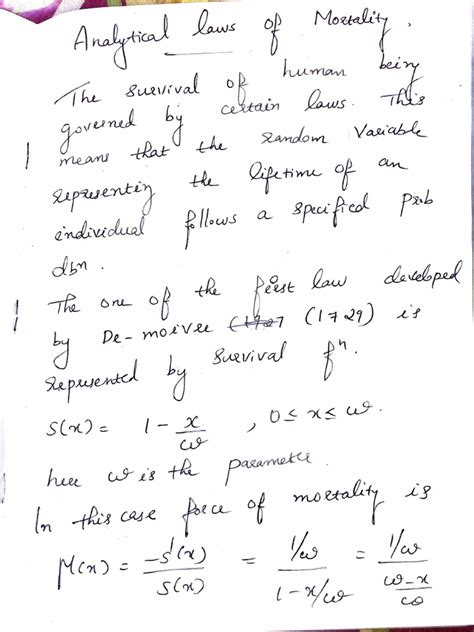 Analytical laws of Mortality.
The survival of human being
governed by certain laws. This
means that the random variable
representing the lifetime of an
individual follows a specified prob
dbn.
The one of the first law developed
by De-moivre (1727 (1729) is
represented by survival fn.
S(x) = 1 - x/ω , 0 ≤ x ≤ ω.
here ω is the parameter.
In this case force of mortality is
μ(x) = -s'(x)/s(x) = 1/ω / 1 - x/ω = 1/ω / ω-x/ω